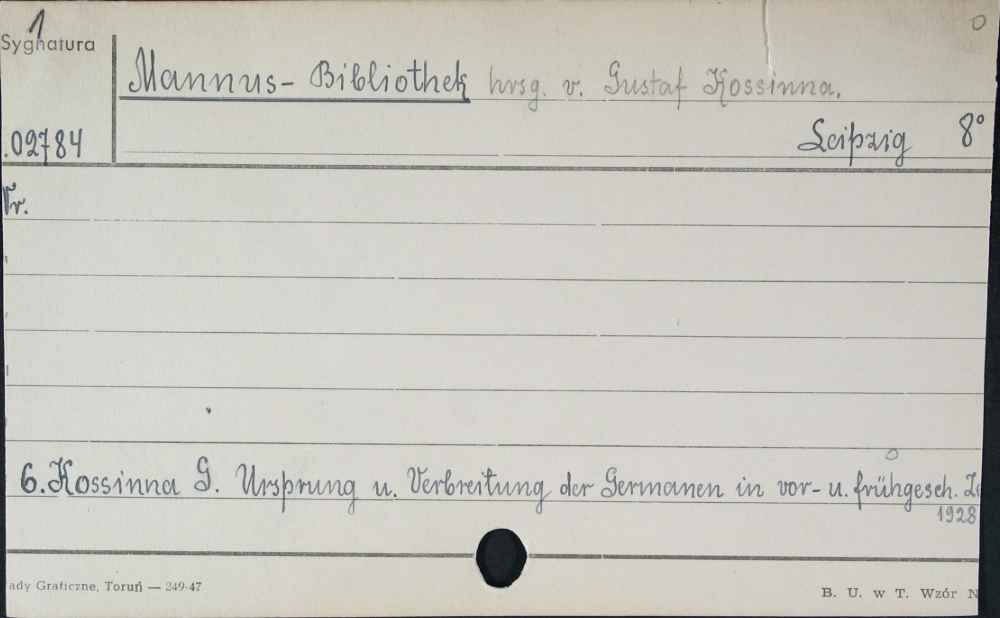 1
Sygnatura
Mannus-Bibliothek hrsg. v. Gustaf Kossinna.
.02784
Leipzig 8°
Nr.
6. Kossinna G. Ursprung u. Verbreitung der Germanen in vor- u. frühgesch. Ze
1928
ady Graficzne, Toruń — 249-47
B. U. w T. Wzór N